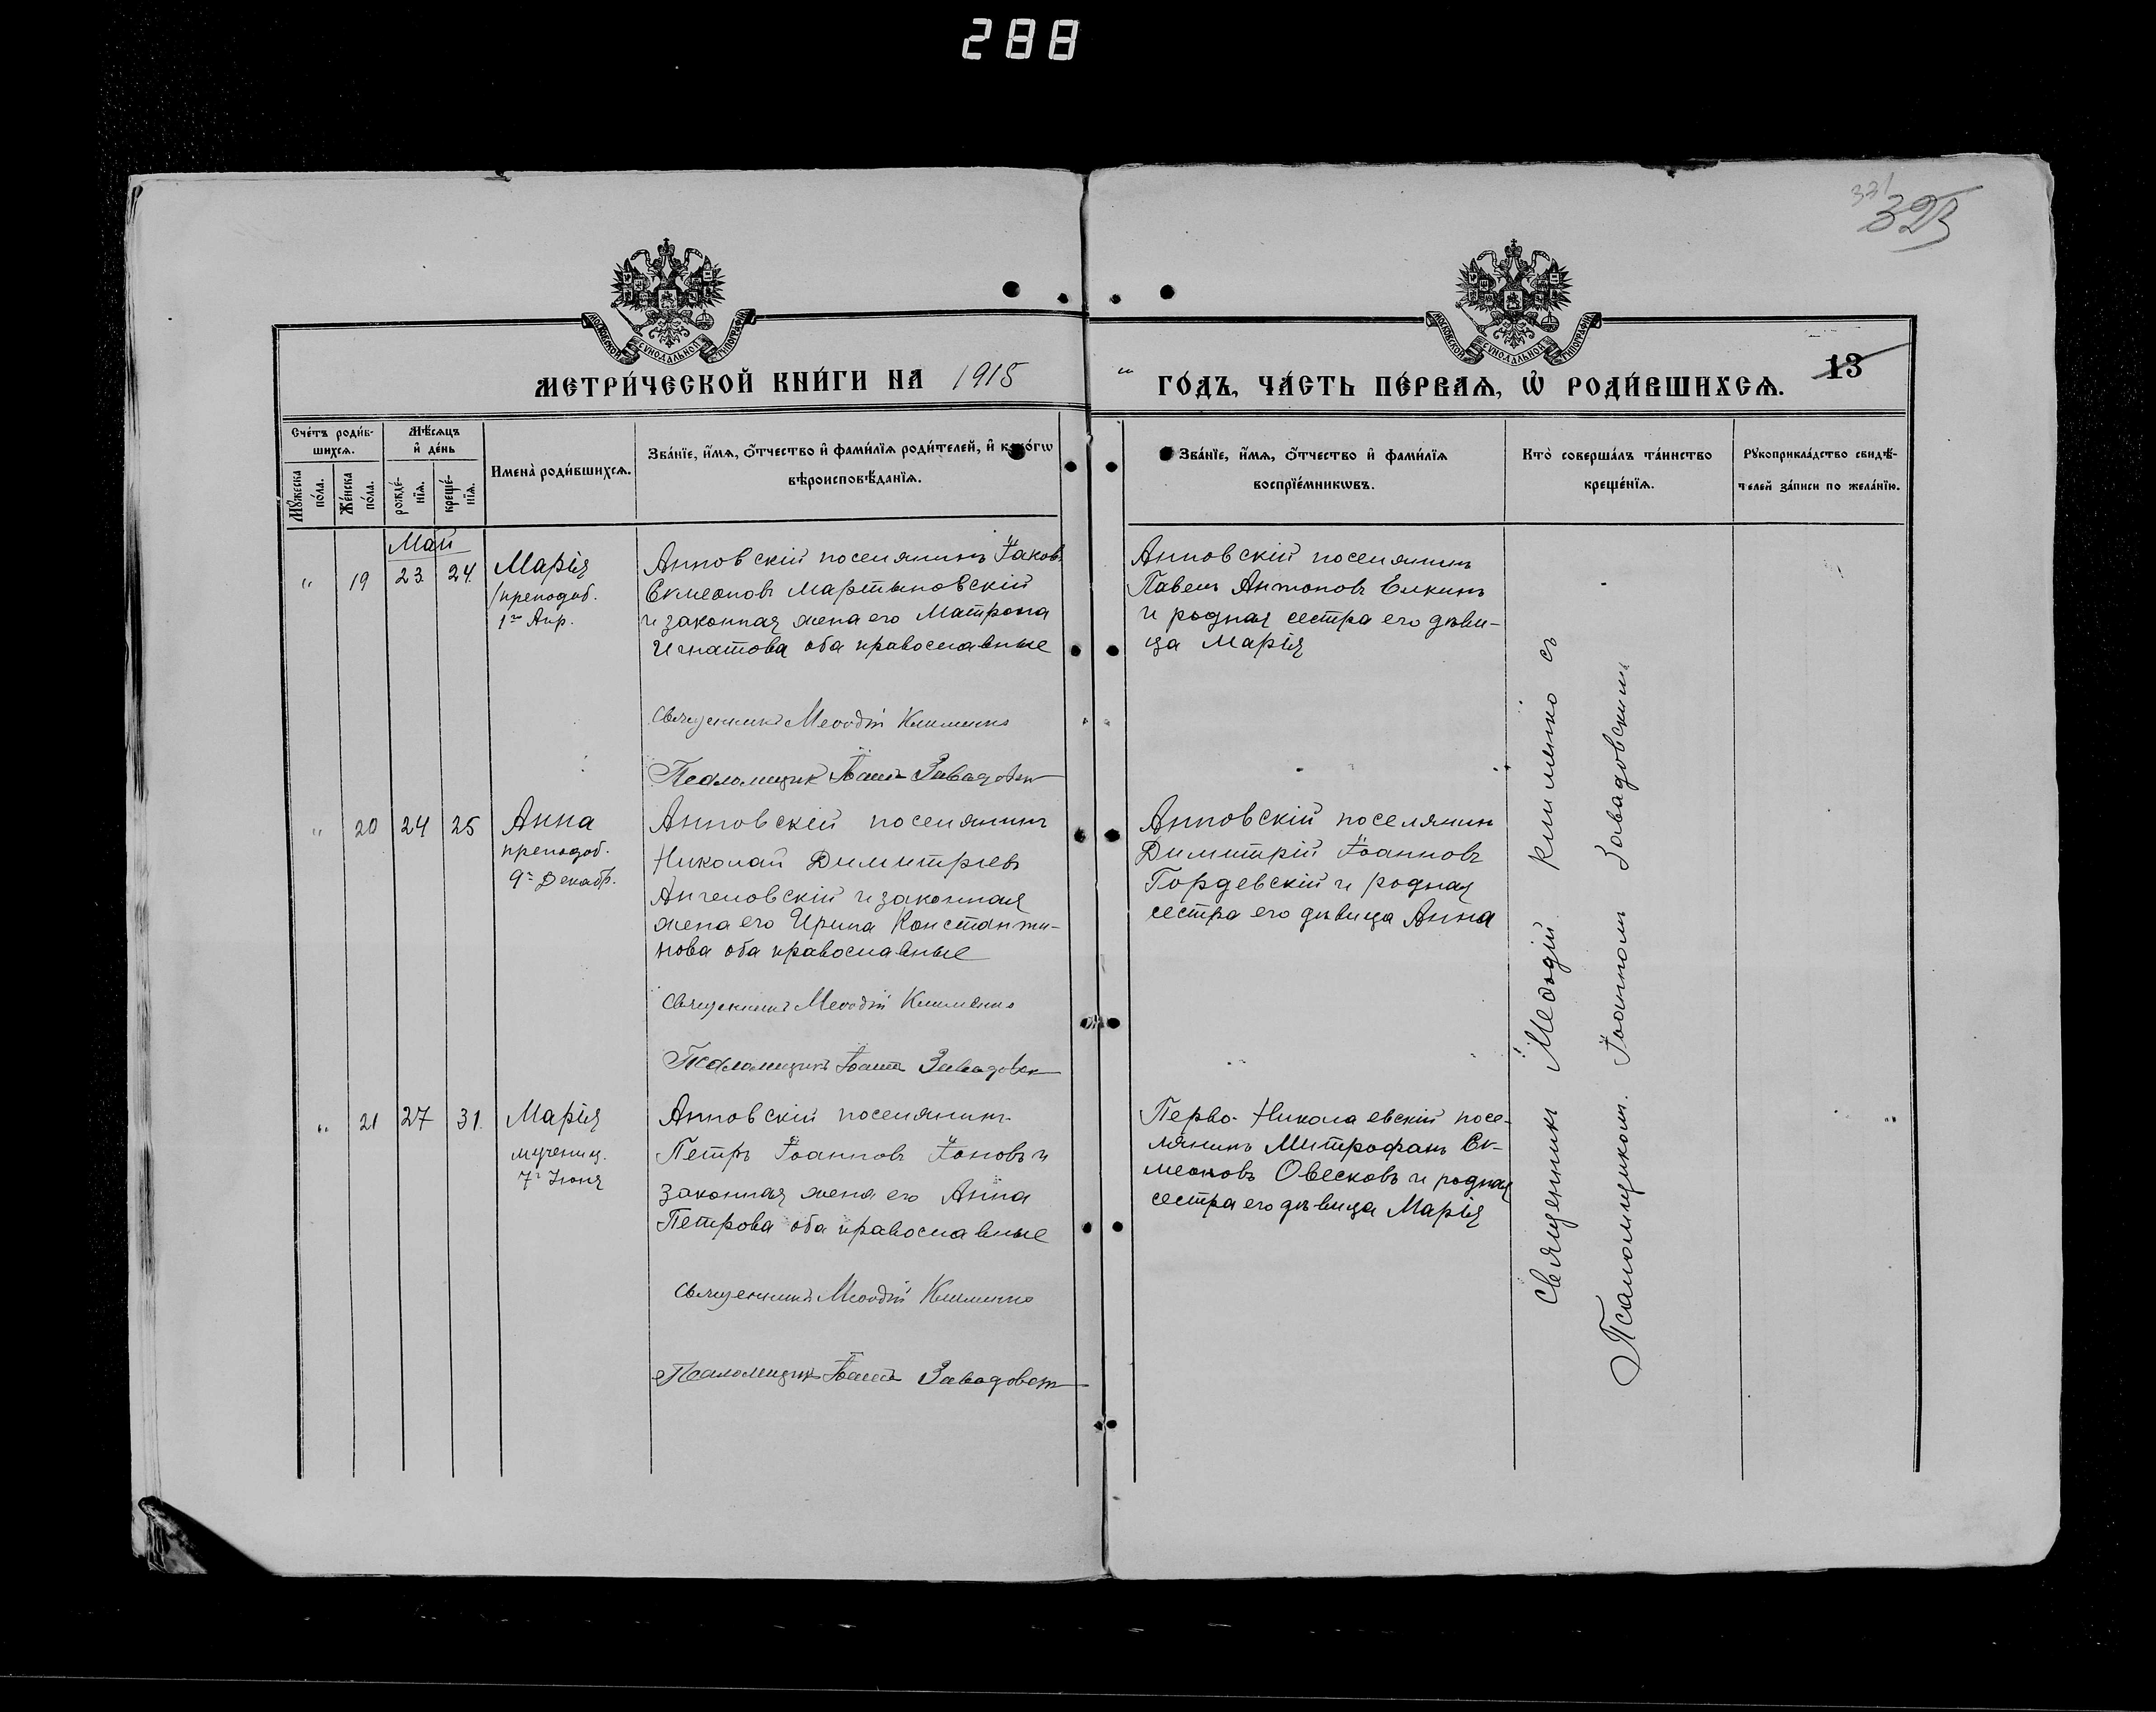 288
331
323
МОСКОВСКОЙ СѴНОДАЛЬНОЙ ТИПОГРАФІИ
МОСКОВСКОЙ СѴНОДАЛЬНОЙ ТИПОГРАФІИ
МЕТРИ́ЧЕСКОЙ КНИ́ГИ НА 1915
" ГО́ДЪ, ЧА́СТЬ ПЕ́РВАЯ, Ѽ РОДИ́ВШИХСѦ. 13
Сче́тъ роди́в-
шихсѧ.
Мꙋ́жеска
по́ла.
Же́нска
по́ла.
Мѣ́сѧцъ
и҆ де́нь
рожде́-
нїѧ.
креще́-
нїѧ.
Имена̀ роди́вшихсѧ.
Зва́нїе, и҆́мѧ, ѻ҆́тчество и҆ фами́лїѧ роди́телей, и҆ како́гѡ
вѣроисповѣ́данїѧ.
Зва́нїе, и҆́мѧ, ѻ҆́тчество и҆ фами́лїѧ
воспрїе́мникѡвъ.
Кто̀ соверша́лъ та́инство
креще́нїѧ.
Рꙋкоприкла́дство свидѣ́-
телей за́писи по жела́нїю.
Май
" 19 23 24
Марія
преподоб.
1го Апр.
Анновскій поселянинъ Іаковъ
Симеоновъ Мартыновскій
и законная жена его Матрона
Игнатова оба православные
Священникъ Меѳодій Клименко
Псаломщикъ Іоаннъ Завадовск
Анновскій поселянинъ
Павелъ Антоновъ Елкинъ
и родная сестра его дѣви-
ца Марія
" 20 24 25
Анна
преподоб.
9го Декабр.
Анновскій поселянинъ
Николай Димитріевъ
Ангеловскій и законная
жена его Ирина Константи-
нова оба православные
Священникъ Меѳодій Клименко
Псаломщикъ Іоаннъ Завадовск
Анновскій поселянинъ
Димитрій Іоанновъ
Гордевскій и родная
сестра его дѣвица Анна
" 21 27 31
Марія
мучениц.
7го Іюня
Анновскій поселянинъ
Петръ Іоанновъ Іоновъ и
законная жена его Анна
Петрова оба православные
Священникъ Меѳодій Клименко
Псаломщикъ Іоаннъ Завадовск
Перво-Николаевскій посе-
лянинъ Митрофанъ Си-
меоновъ Овесковъ и родная
сестра его дѣвица Марія
"
Священникъ Меѳодій Клименко съ
Псаломщикомъ Іоанномъ Завадовскимъ